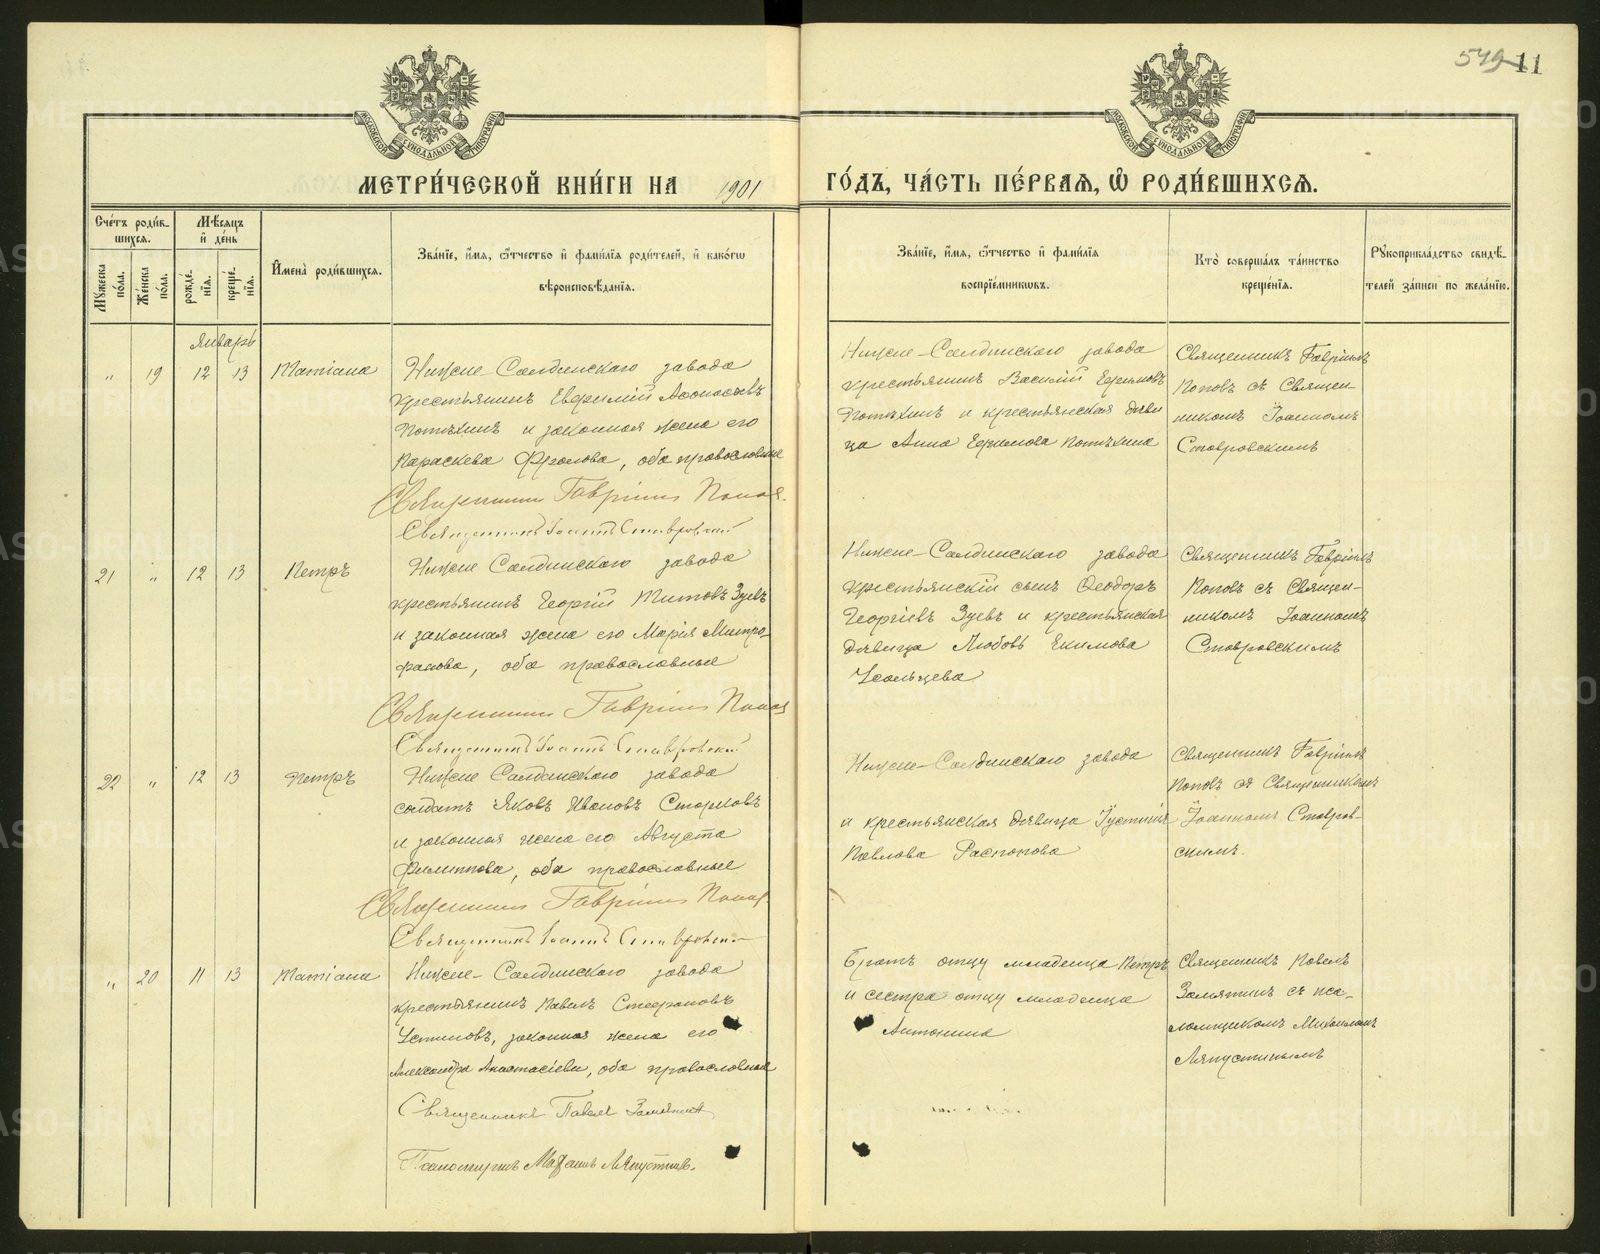 549 11
МОСКОВСКОЙ СѴНОДАЛЬНОЙ ТИПОГРАФІИ
МОСКОВСКОЙ СѴНОДАЛЬНОЙ ТИПОГРАФІИ
МЕТРИ́ЧЕСКОЙ КНИ́ГИ НА 1901
ГО́ДЪ, ЧА́СТЬ ПЕ́РВАЯ, Ѡ҆ РОДИ́ВШИХСЯ.
Сче́тъ роди́в-
шихся.
Мѣ́сяцъ
и҆ де́нь
Мꙋ́жеска по́ла.
Же́нска по́ла.
рожде́нїя.
креще́нїя.
И҆мена̀ роди́вшихся.
Зва́нїе, и҆́мя, ѻ҆́тчество и҆ фами́лїя роди́телей, и҆ како́гѡ
вѣроисповѣ́данїя.
Зва́нїе, и҆́мя, ѻ҆́тчество и҆ фами́лїя
воспрїе́мникѡвъ.
Кто̀ соверша́лъ та́инство
креще́нїя.
Рꙋкоприкла́дство свидѣ́-
телей за́писи по жела́нїю.
Январь
„ 19 12 13 Татіана
Нижне-Салдинскаго завода
крестьянинъ Евфимій Аѳонасьевъ
Потѣхинъ и законная жена его
Параскева Фролова, оба православные
Священникъ Гавріилъ Поповъ.
Священникъ Іоаннъ Ставровскій
Нижне-Салдинскаго завода
крестьянинъ Василій Ефимовъ
Потѣхинъ и крестьянская дѣви
ца Анна Ефимова Потѣхина
Священникъ Гавріилъ
Поповъ съ Священ-
никомъ Іоанномъ
Ставровскимъ
21 „ 12 13 Петръ
Нижне Салдинскаго завода
крестьянинъ Георгій Титовъ Зуевъ
и законная жена его Марія Митро-
фанова, оба православные
Священникъ Гавріилъ Поповъ
Священникъ Іоаннъ Ставровскій
Нижне-Салдинскаго завода
крестьянскій сынъ Ѳеодоръ
Георгіевъ Зуевъ и крестьянская
дѣвица Любовь Екимова
Усольцева
Священникъ Гавріилъ
Поповъ съ Священ-
никомъ Іоанномъ
Ставровскимъ
22 „ 12 13 Петръ
Нижне Салдинскаго завода
солдатъ Яковъ Ивановъ
и законная жена его Августа
Филиппова, оба православные
Священникъ Гавріилъ Поповъ
Священникъ Іоаннъ Ставровскій
Нижне-Салдинскаго завода
и крестьянская дѣвица Іустинія
Павлова Распопова
Священникъ Гавріилъ
Поповъ съ Священникомъ
Іоанномъ Ставров-
скимъ.
„ 20 11 13 Татіана
Нижне-Салдинскаго завода
крестьянинъ Павелъ Стефановъ
Устиновъ, законная жена его
Александра Анастасіева, оба православные
Священникъ Павелъ Замятинъ
Псаломщикъ Михаилъ Ляпустинъ.
Братъ отцу младенца Петръ
и сестра отцу младенца
Антонина
Священникъ Павелъ
Замятинъ съ пса-
ломщикомъ Михаиломъ
Ляпустинымъ
METRIKI.GASO-URAL.RU